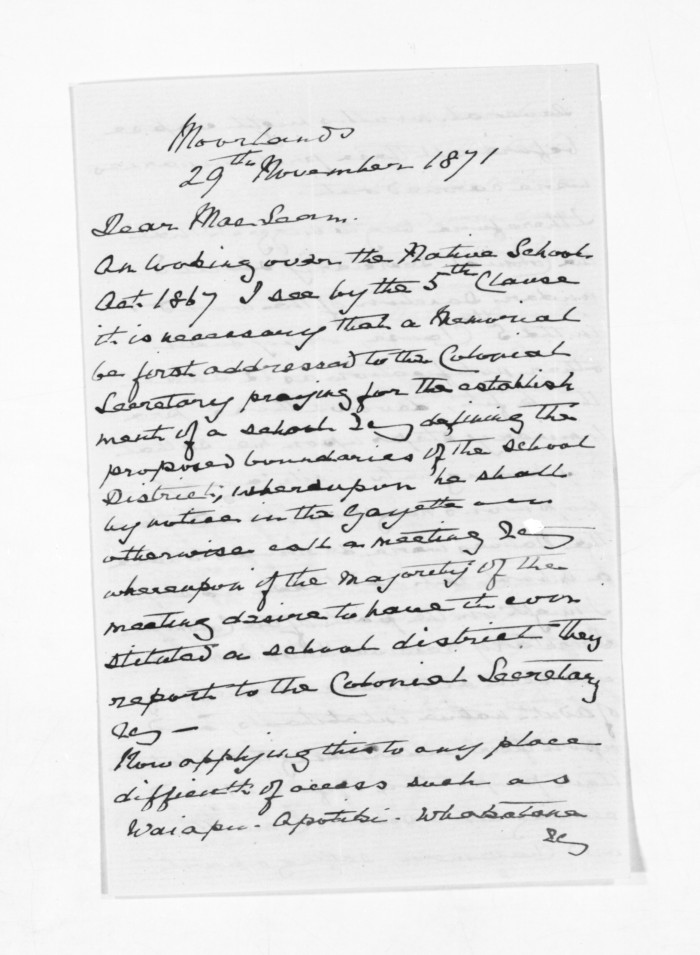 Moorlands
29th November 1871
Dear MacLean.
On looking over the Native School
Act. 1867 I see by the 5th Clause
it is necessary that a Memorial
be first addressed to the Colonial
Secretary praying for the establish
ment of a school &c defining the
proposed boundaries of the School
District, whereupon he shall
by notice in the Gazette or
otherwise call a meeting &c
whereupon if the majority of the
meeting desire to have it con
stituted a school district they
report to the Colonial Secretary
&c —
Now applying this to any place
difficult of access such as
Waiapu - Opotiki - Whakatane
&c